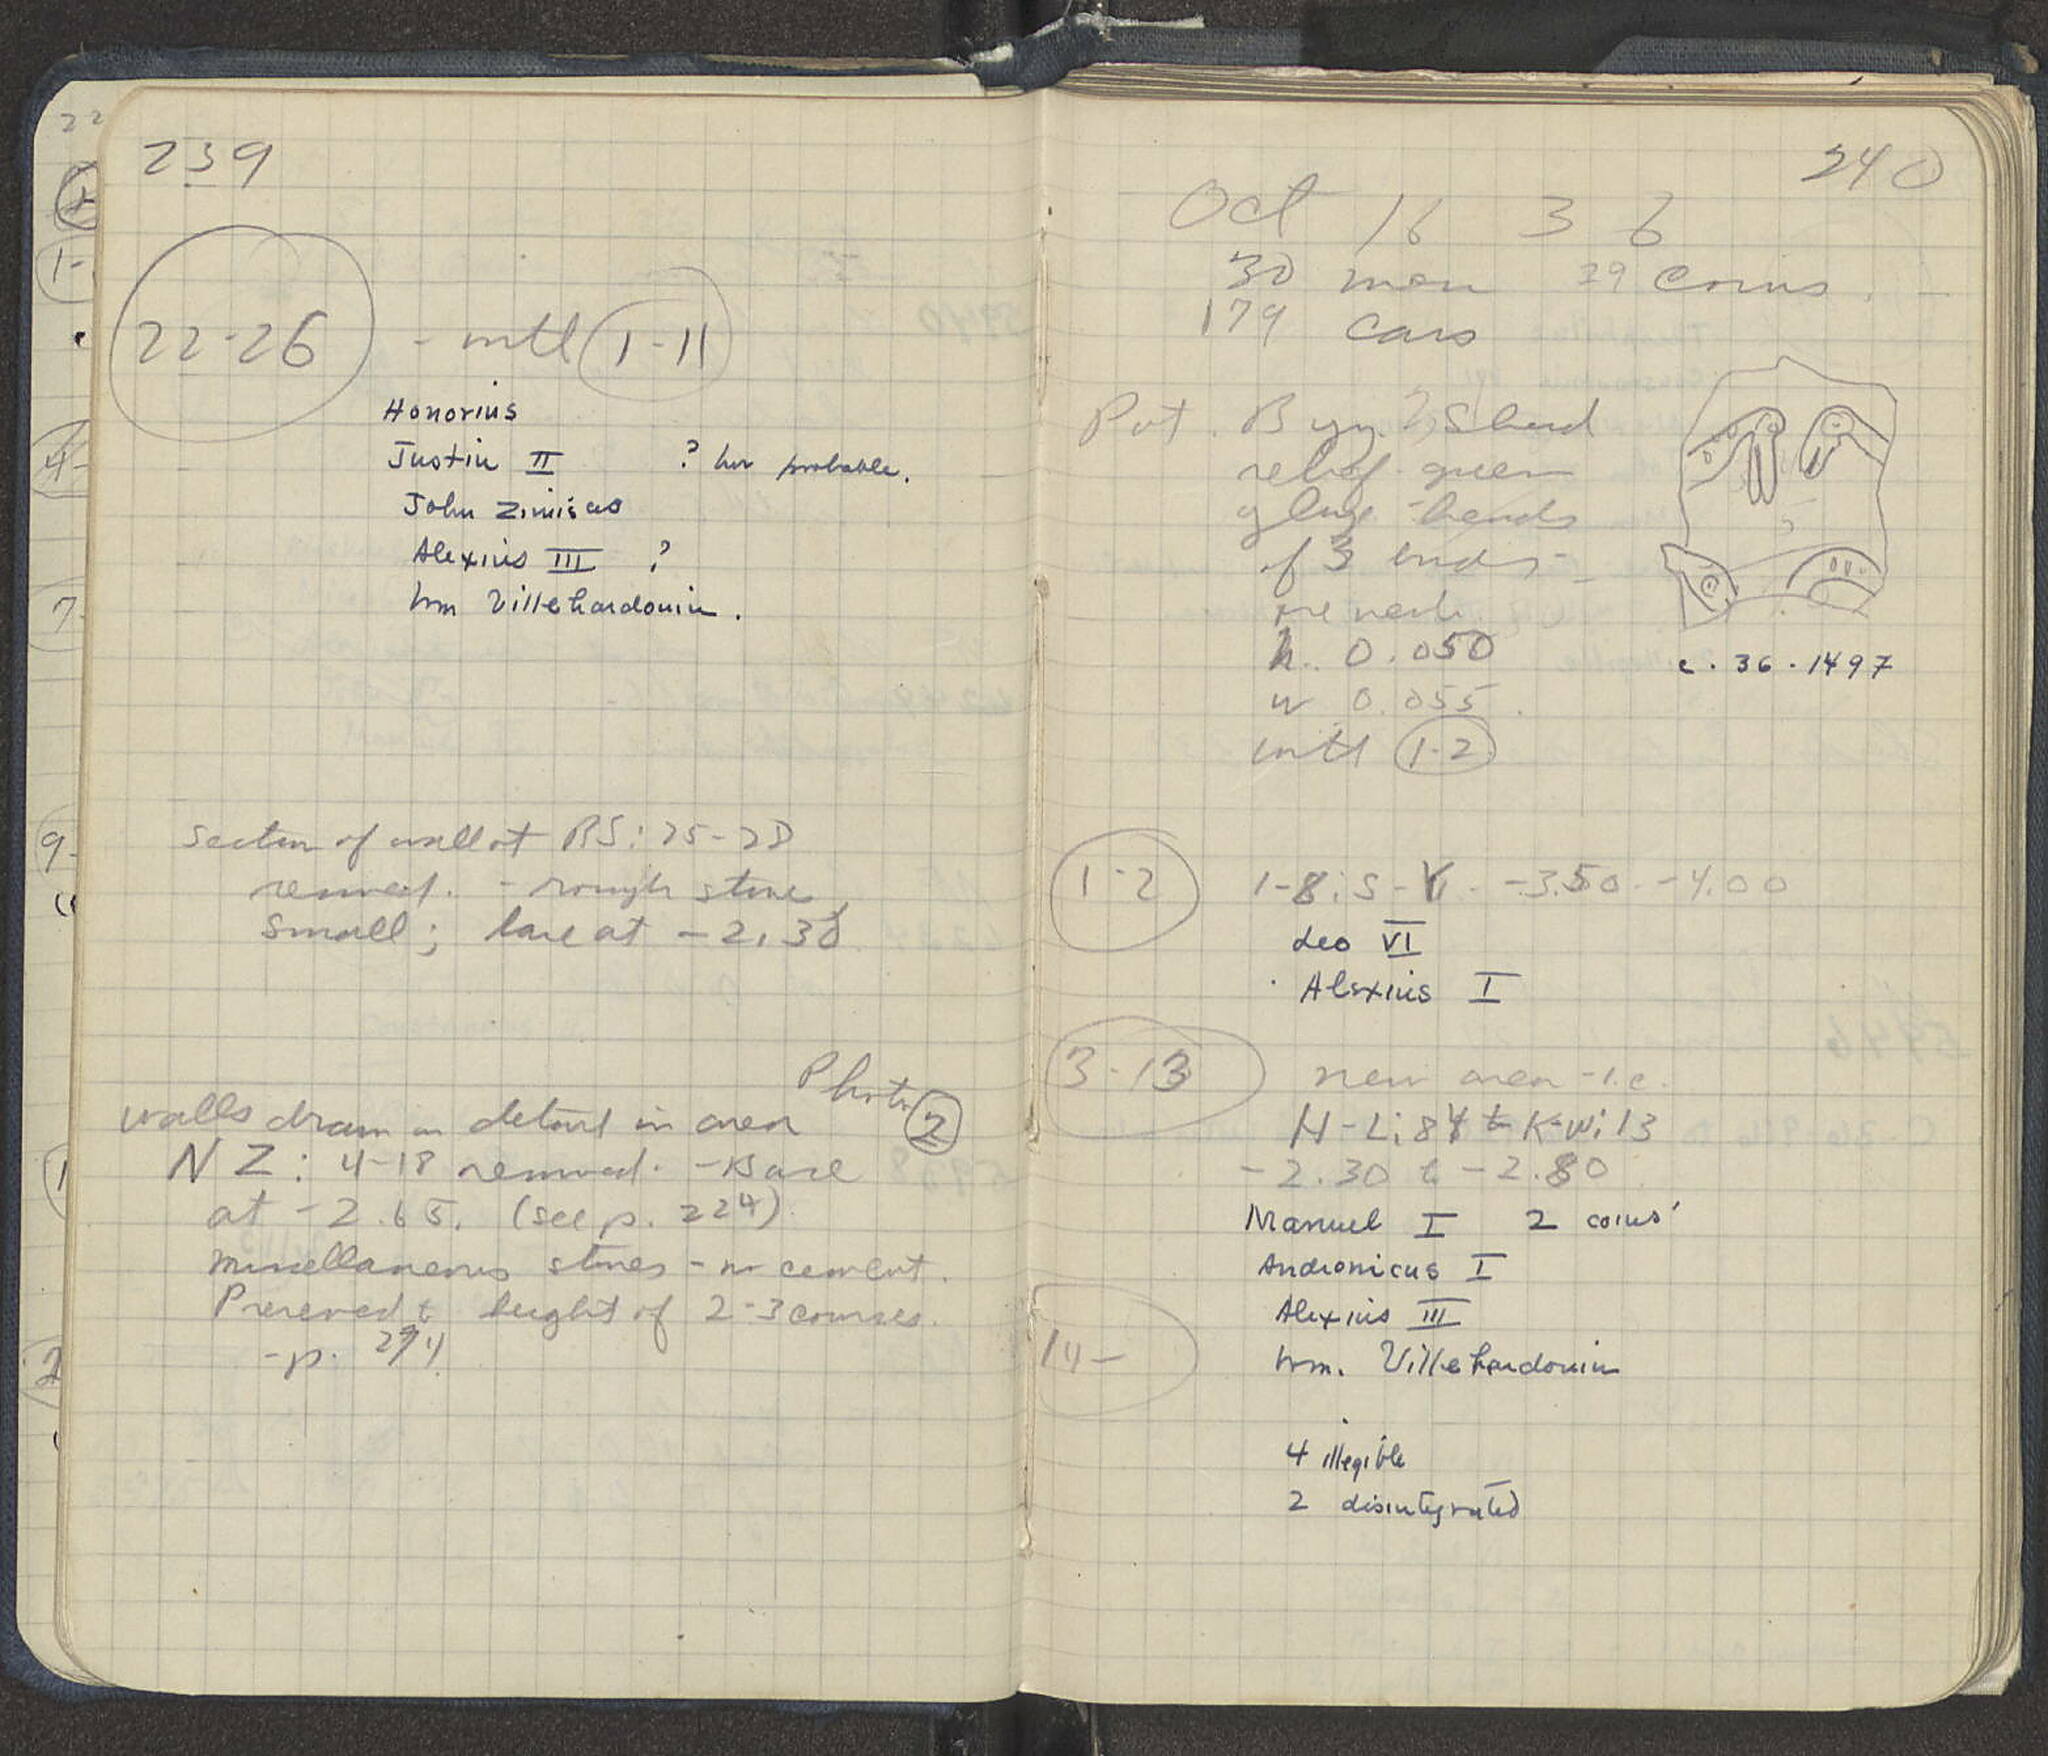 239
22-26 - with 1-11
Honorius
Justin II ? but probable.
John Zimisces
Alexius III ?
Wm Villehardouin.
Section of wall at RS: 25-28
removed. - rough stone,
small; base at -2.30
Photo 2
walls drawn in detail in area
NZ: 4-18 removed. - Base
at -2.65. (see p. 224).
Miscellaneous stones - no cement.
Preserved to height of 2-3 courses.
- p.
240
Oct 16 36
30 men 29 coins.
179 cars
Pot. Byz. Sherd
relief green
glaze - heads
of 3 birds -
one neck
h. 0.050
w 0.055.
with 1-2
c. 36. 1497
1-2 -3.50 - -4.00
Leo VI
Alexius I
3-13 new area - i.e.
H-L: 84 to K-W: 13
-2.30 to -2.80
Manuel I 2 coins
Andronicus I
Alexius III
14- Wm. Villehardouin
4 illegible
2 disintegrated